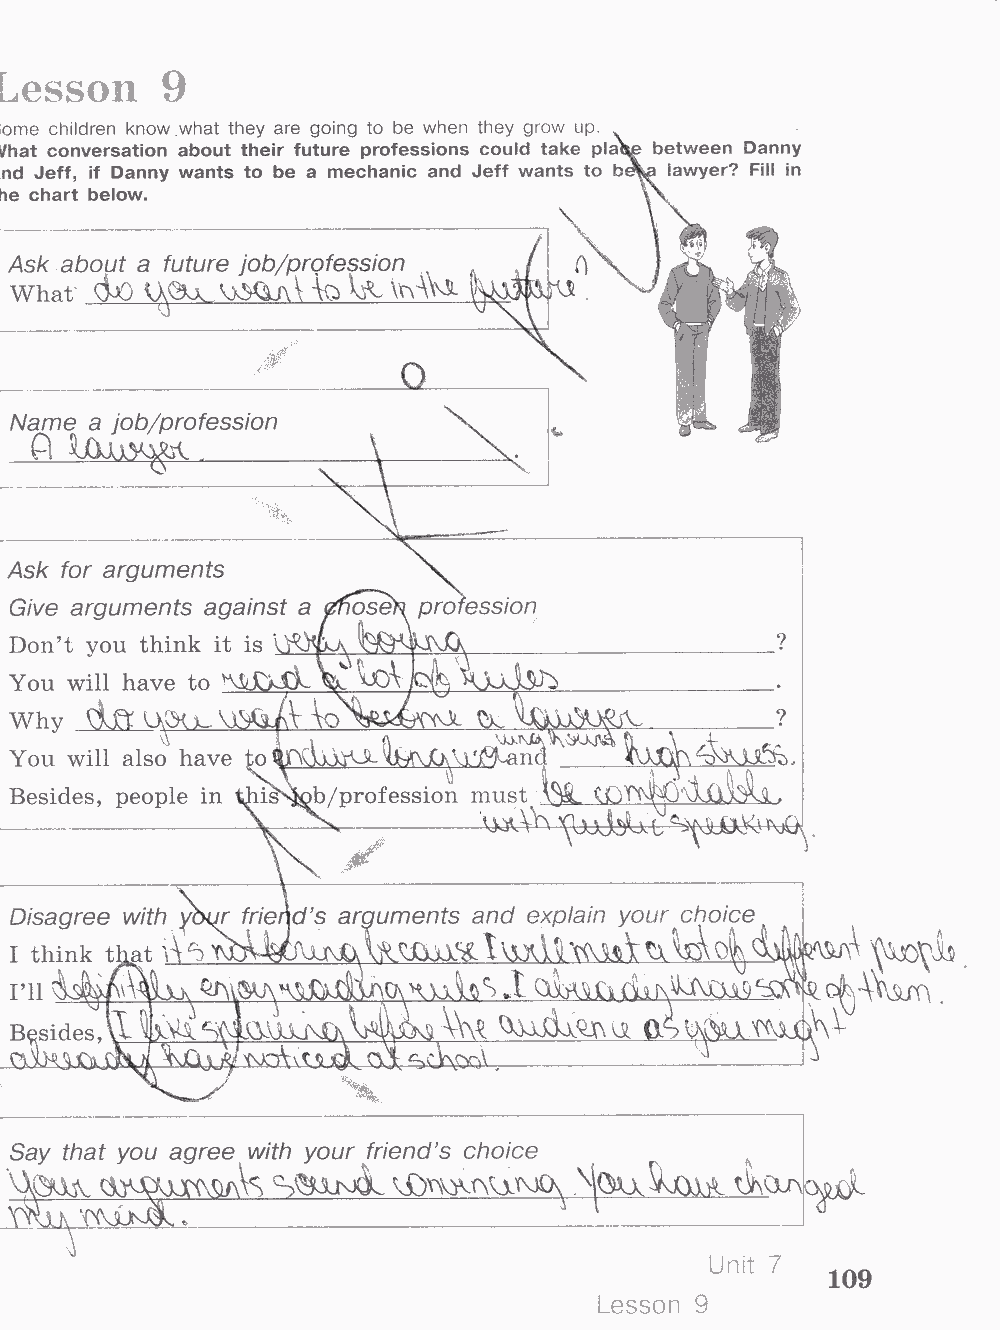 Lesson 9
ome children know what they are going to be when they grow up.
What conversation about their future professions could take place between Danny
nd Jeff, if Danny wants to be a mechanic and Jeff wants to be a lawyer? Fill in
he chart below.
Ask about a future job/profession
What do you want to be in the future?
Name a job/profession
A lawyer.
Ask for arguments
Give arguments against a chosen profession
Don't you think it is very boring ?
You will have to read a lot of rules .
Why do you want to become a lawyer ?
You will also have to endure long working hours and high stress.
Besides, people in this job/profession must be comfortable
with public speaking.
Disagree with your friend's arguments and explain your choice
I think that it's not boring because I will meet a lot of different people.
I'll definitely enjoy reading rules. I already know some of them.
Besides, I like speaking before the audience as you meght
already have noticed at school.
Say that you agree with your friend's choice
Your arguments sound convincing. You have changed
my mind.
Unit 7
109
Lesson 9